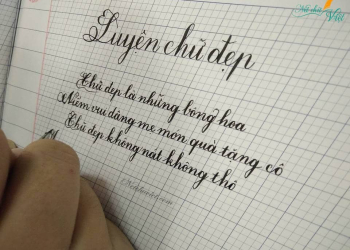 Nét chữ Việt
Luyện chữ đẹp
Chữ đẹp là những bông hoa
Niềm vui dâng mẹ món quà tặng cô
Chữ đẹp không nát không thô